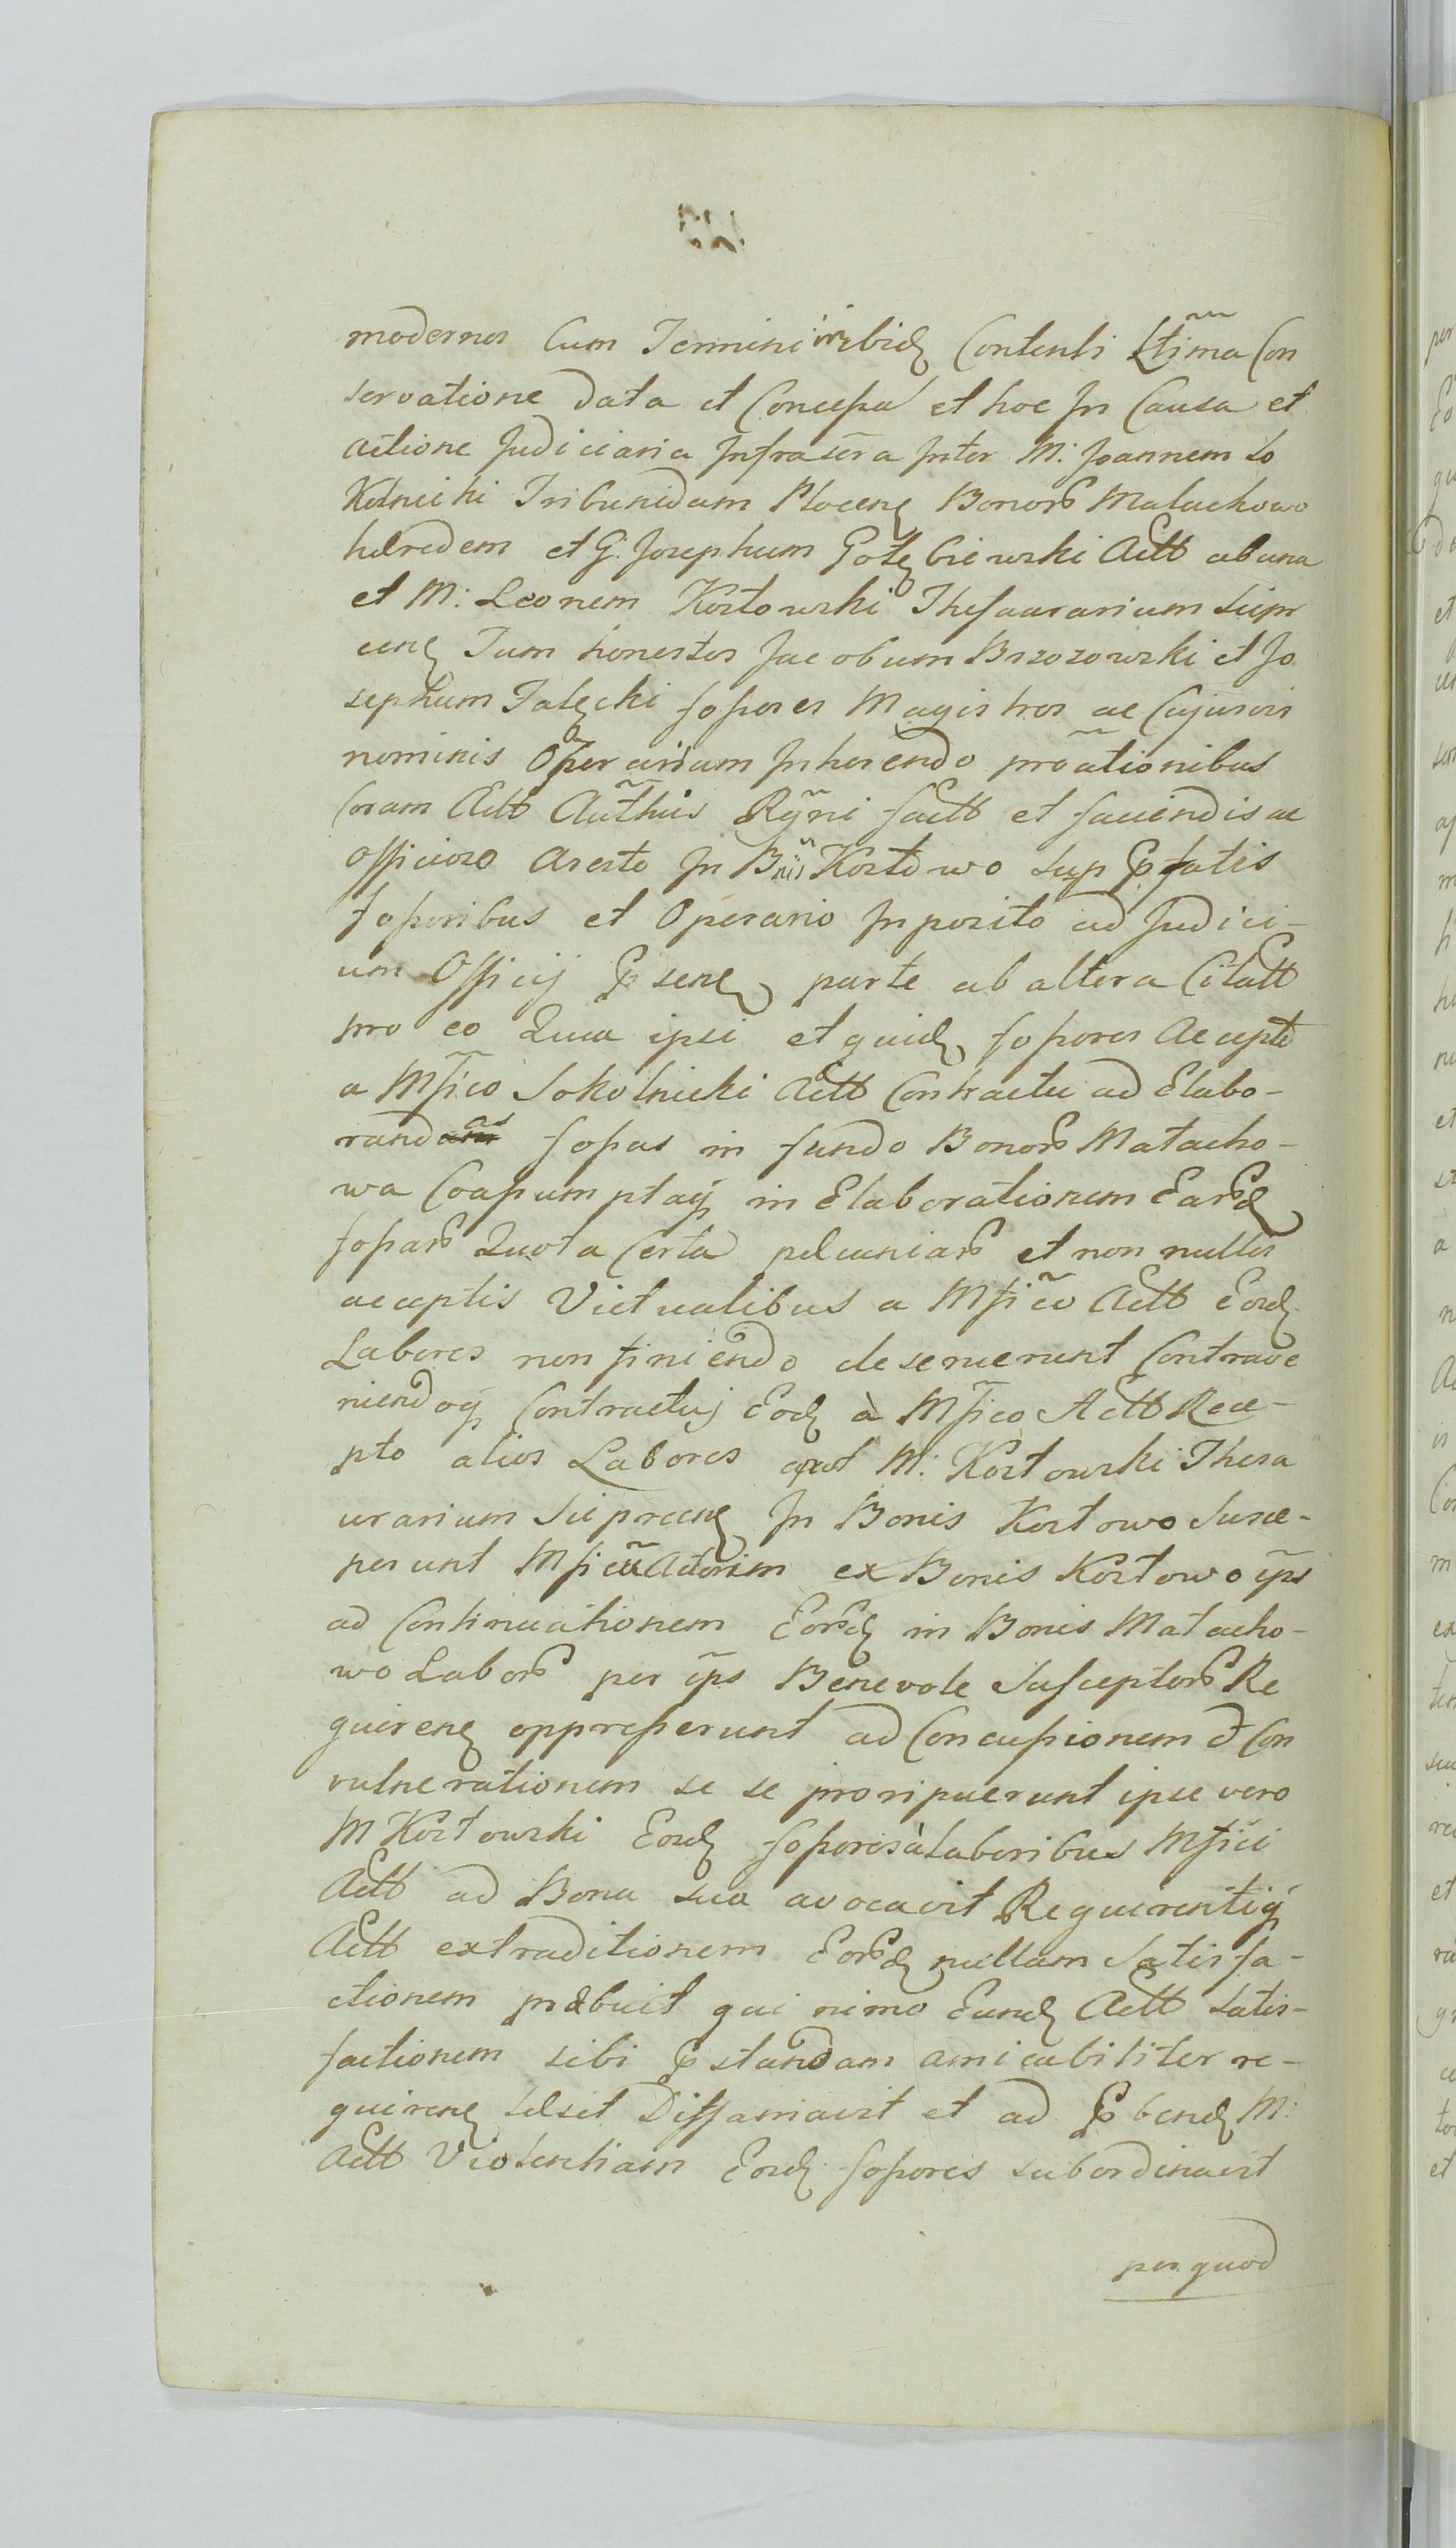 modernos Cum Termini in ibidę Contenti Ltĩma Con
servatione data et Concessa et hoc In Causa et
actione Judiciaria Infrascra Inter M: Joannem So
kolnicki Tribunidam Plocenę Bonorɔ Malachowo
hæredem et G. Josephum Gołębiewski Actt ab una
et M: Leonem Kozłowski Thesaurarium Siepr
cenę Tum honestos Jacobum Brzozowski et Jo
sephum Jałęcki fossores Magistros ac Cujusvis
nominis Operarium Inhærendo prõationibus
Coram Actt Aũthis Rgñi factt et faciendis ac
officioso Aresto In Bñis Kozłowo sup pfatis
fossoribus et Operario Inposito ad Judici-
um Officij psenę parte ab altera Citatt
pro eo Quia ipsi et quidę fossores Accepto
a Mfico Sokolnicki Actt Contractu ad Elabo-
randas fossas in fundo Bonorɔ Małacho-
wa Coassumptaq in Elaborationem Earɔdę
fossarɔ Quota Certa pecuniarɔ et non nullis
acceptis Victualibus a Mfico Actt Eosdę
Labores non finiendo deseruerunt Contrave
niendoq Contractuj Eodę à Mfico Actt Rece-
pto alios Labores apud M: Kozłowski Thesa
urarium Sieprcenę In Bonis Kozłowo Susce-
perunt Mficũ Actorem ex Bonis Kozłowo ip̃s
ad Continuationem Eorɔdę in Bonis Małacho-
wo Laborɔ per ip̃s Benevole Susceptorɔ Re
quirenę oppresserunt ad Concussionem & Con
vulnerationem se se proripuerunt ipse vero
M Kozłowski Eosdę fossores à Laboribus Mfici
Actt ad Bona sua avocavit Requirentiq
Actt extraditionem Eorɔdę nullam Satisfa-
ctionem præbuit qui nimo Eundę Actt Satis-
factionem sibi pstandam amicabiliter re-
quirenę læsit Diffamavit et ad pbendę M:
Actt Violentiam Eosdę fossores subordinavit
per quod